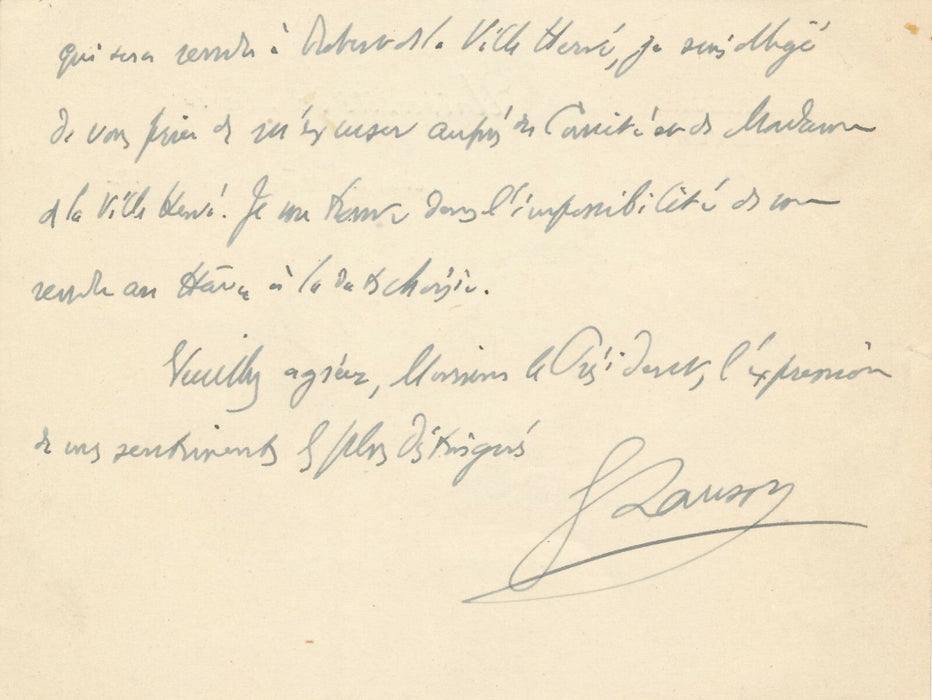 qui sera rendu à Robert de la Ville Hervé, je suis obligé
de vous prier de m'excuser auprès du Comité et de Madame
de la Ville Hervé. Je me trouve dans l'impossibilité de me
rendre au Hâvre à la date choisie.
Veuillez agréer, Monsieur le Président, l'expression
de mes sentiments les plus distingués
G Lanson